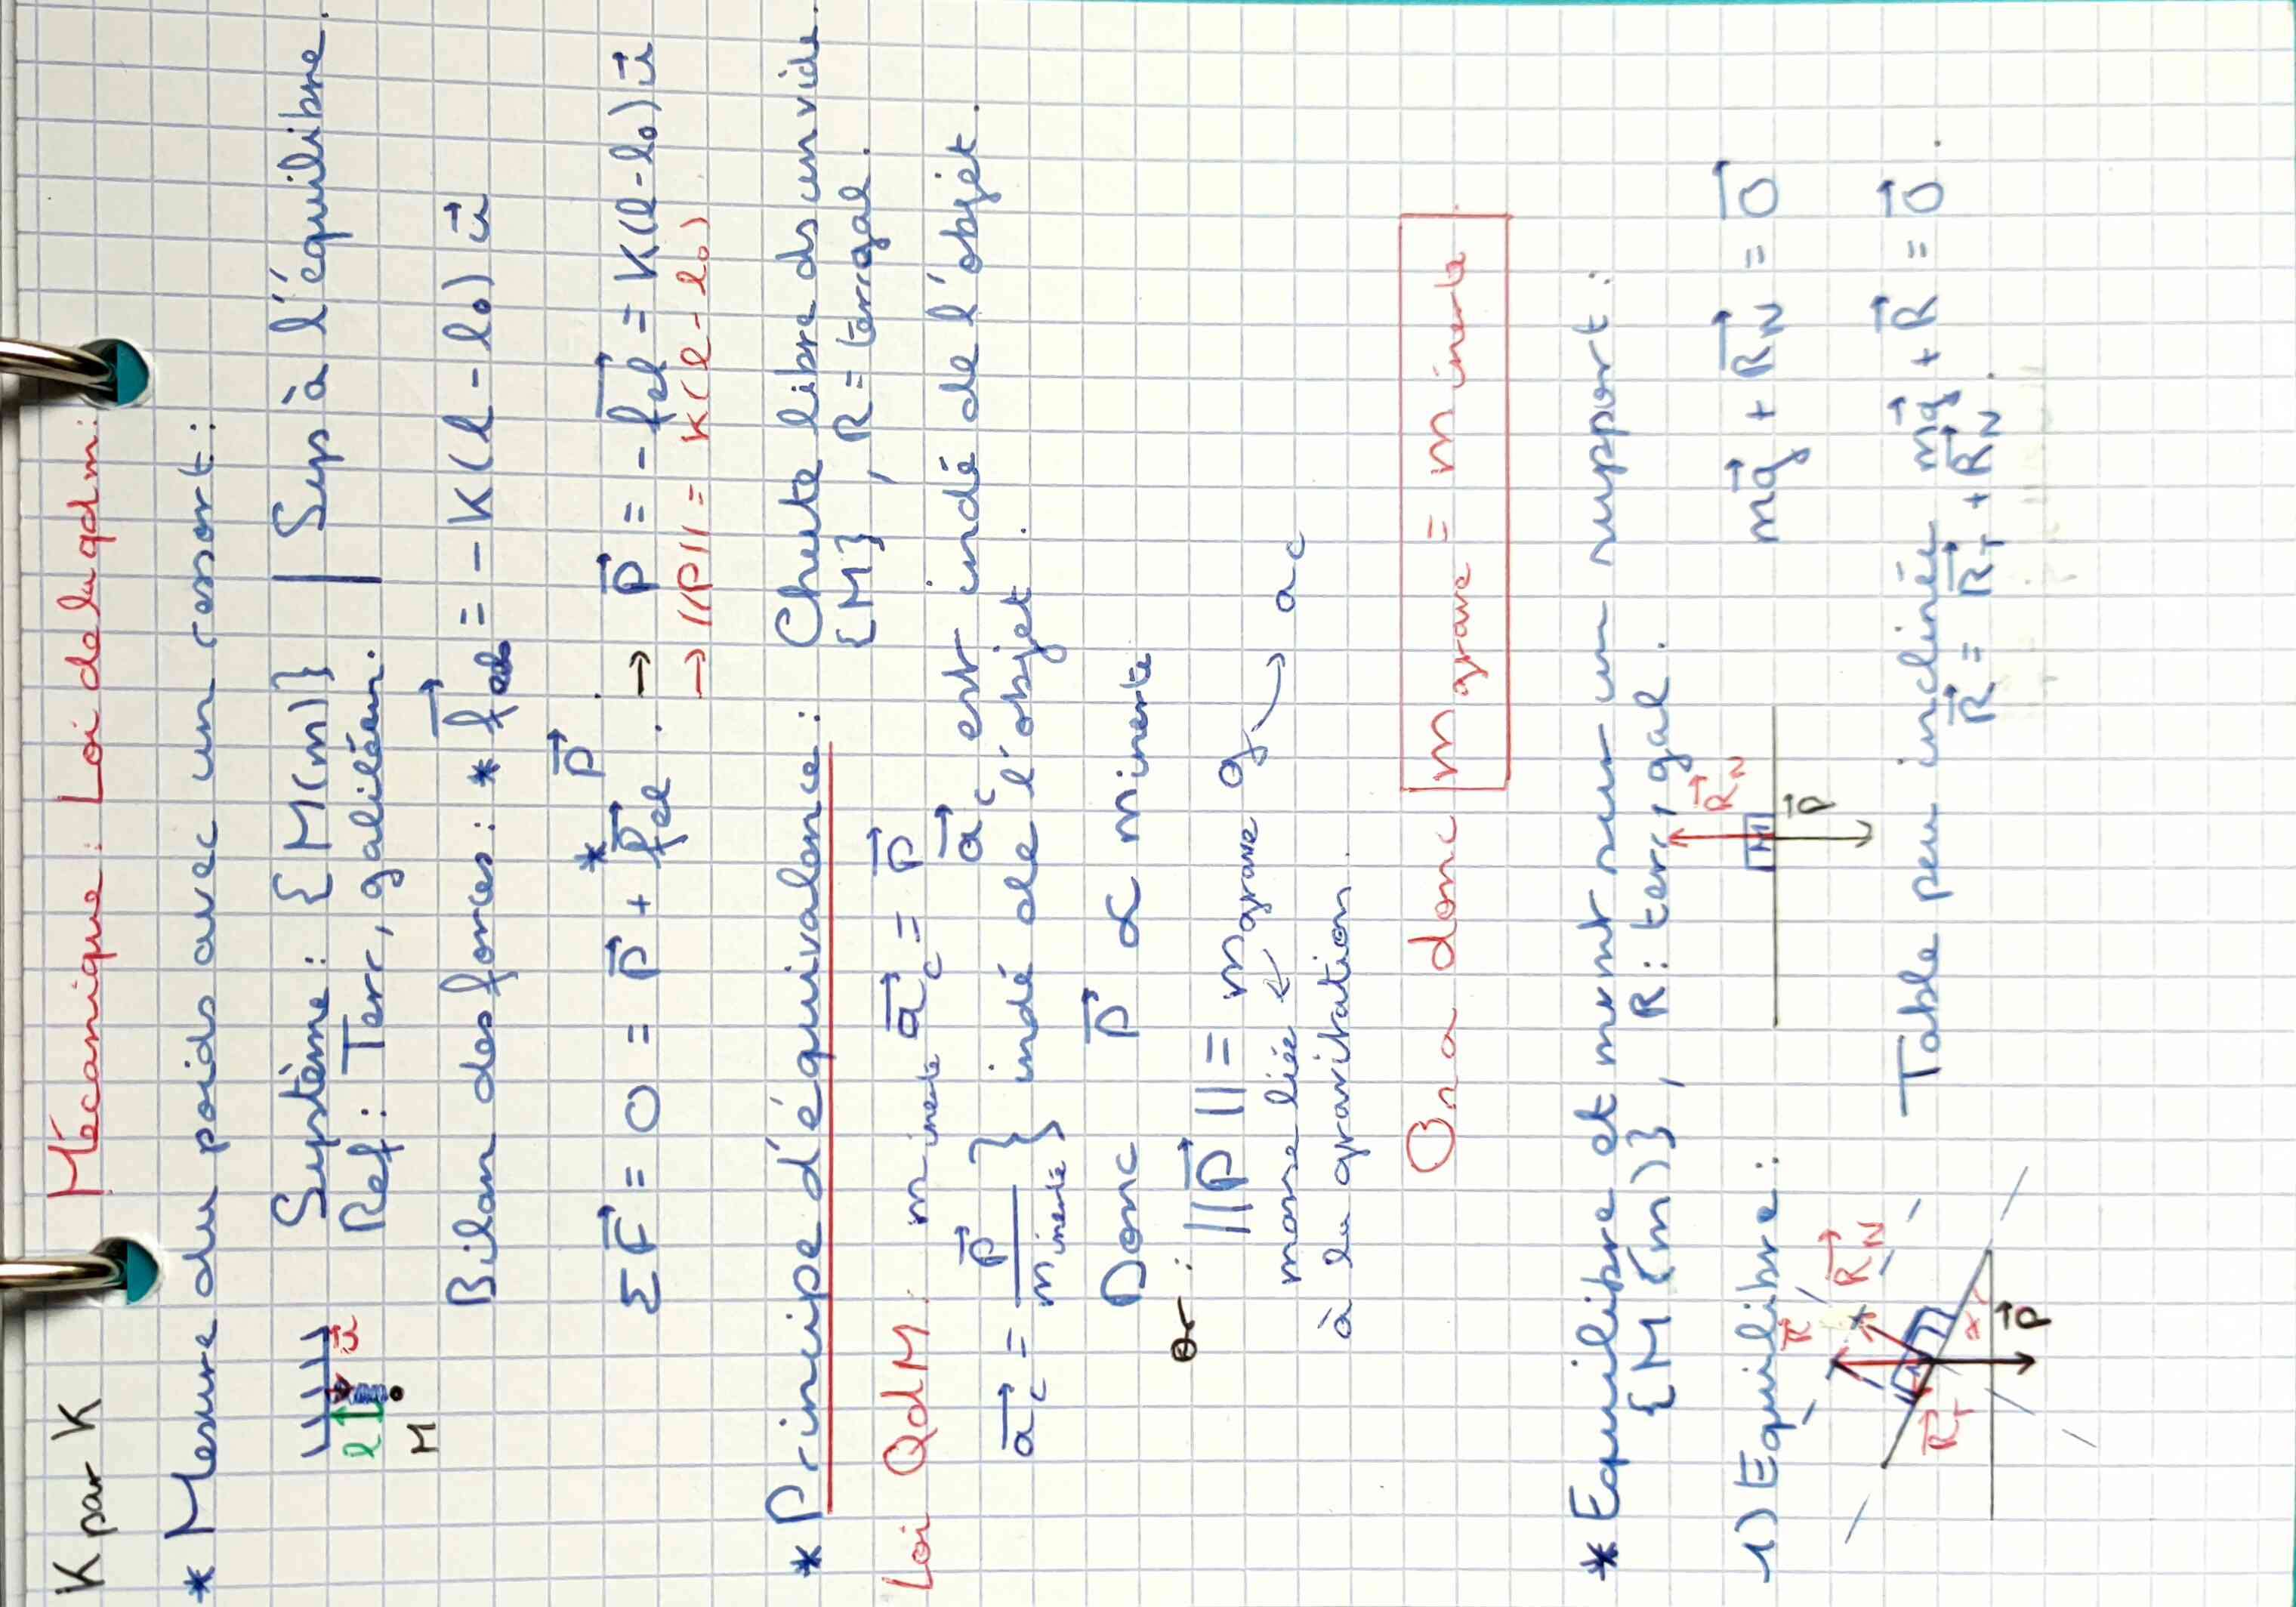 K par K Mécanique : Loi de la qdm :
* Mesure du poids avec un ressort :
Système : {M(m)} | Sys à l'équilibre.
Ref : Terr, galiléen.
l u⃗
M
Bilan des forces : * f⃗el = - K(l - l₀) u⃗
* P⃗
ΣF⃗ = 0 = P⃗ + f⃗el . → P⃗ = - f⃗el = K(l - l₀) u⃗
→ ||P|| = K(l - l₀)
* Principe d'équivalence : Chute libre ds un vide.
{M} , R = terr gal.
Loi QdM : m inerte a⃗c = P⃗
a⃗c est indé de l'objet.
a⃗c = P⃗ / m inerte } indé de l'objet.
Donc P⃗ ∝ m inerte
Or : ||P⃗|| = m grave g → ac
masse liée ←
à la gravitation.
On a donc m grave = m inerte
* Equilibre et mvmt sur un support :
{M(m)} , R : terr, gal.
1) Equilibre :
R⃗N
M
P⃗
mg⃗ + R⃗N = 0⃗
Table peu inclinée mg⃗ + R⃗ = 0⃗.
R⃗ = R⃗T + R⃗N.
R⃗ R⃗N
R⃗T α
P⃗